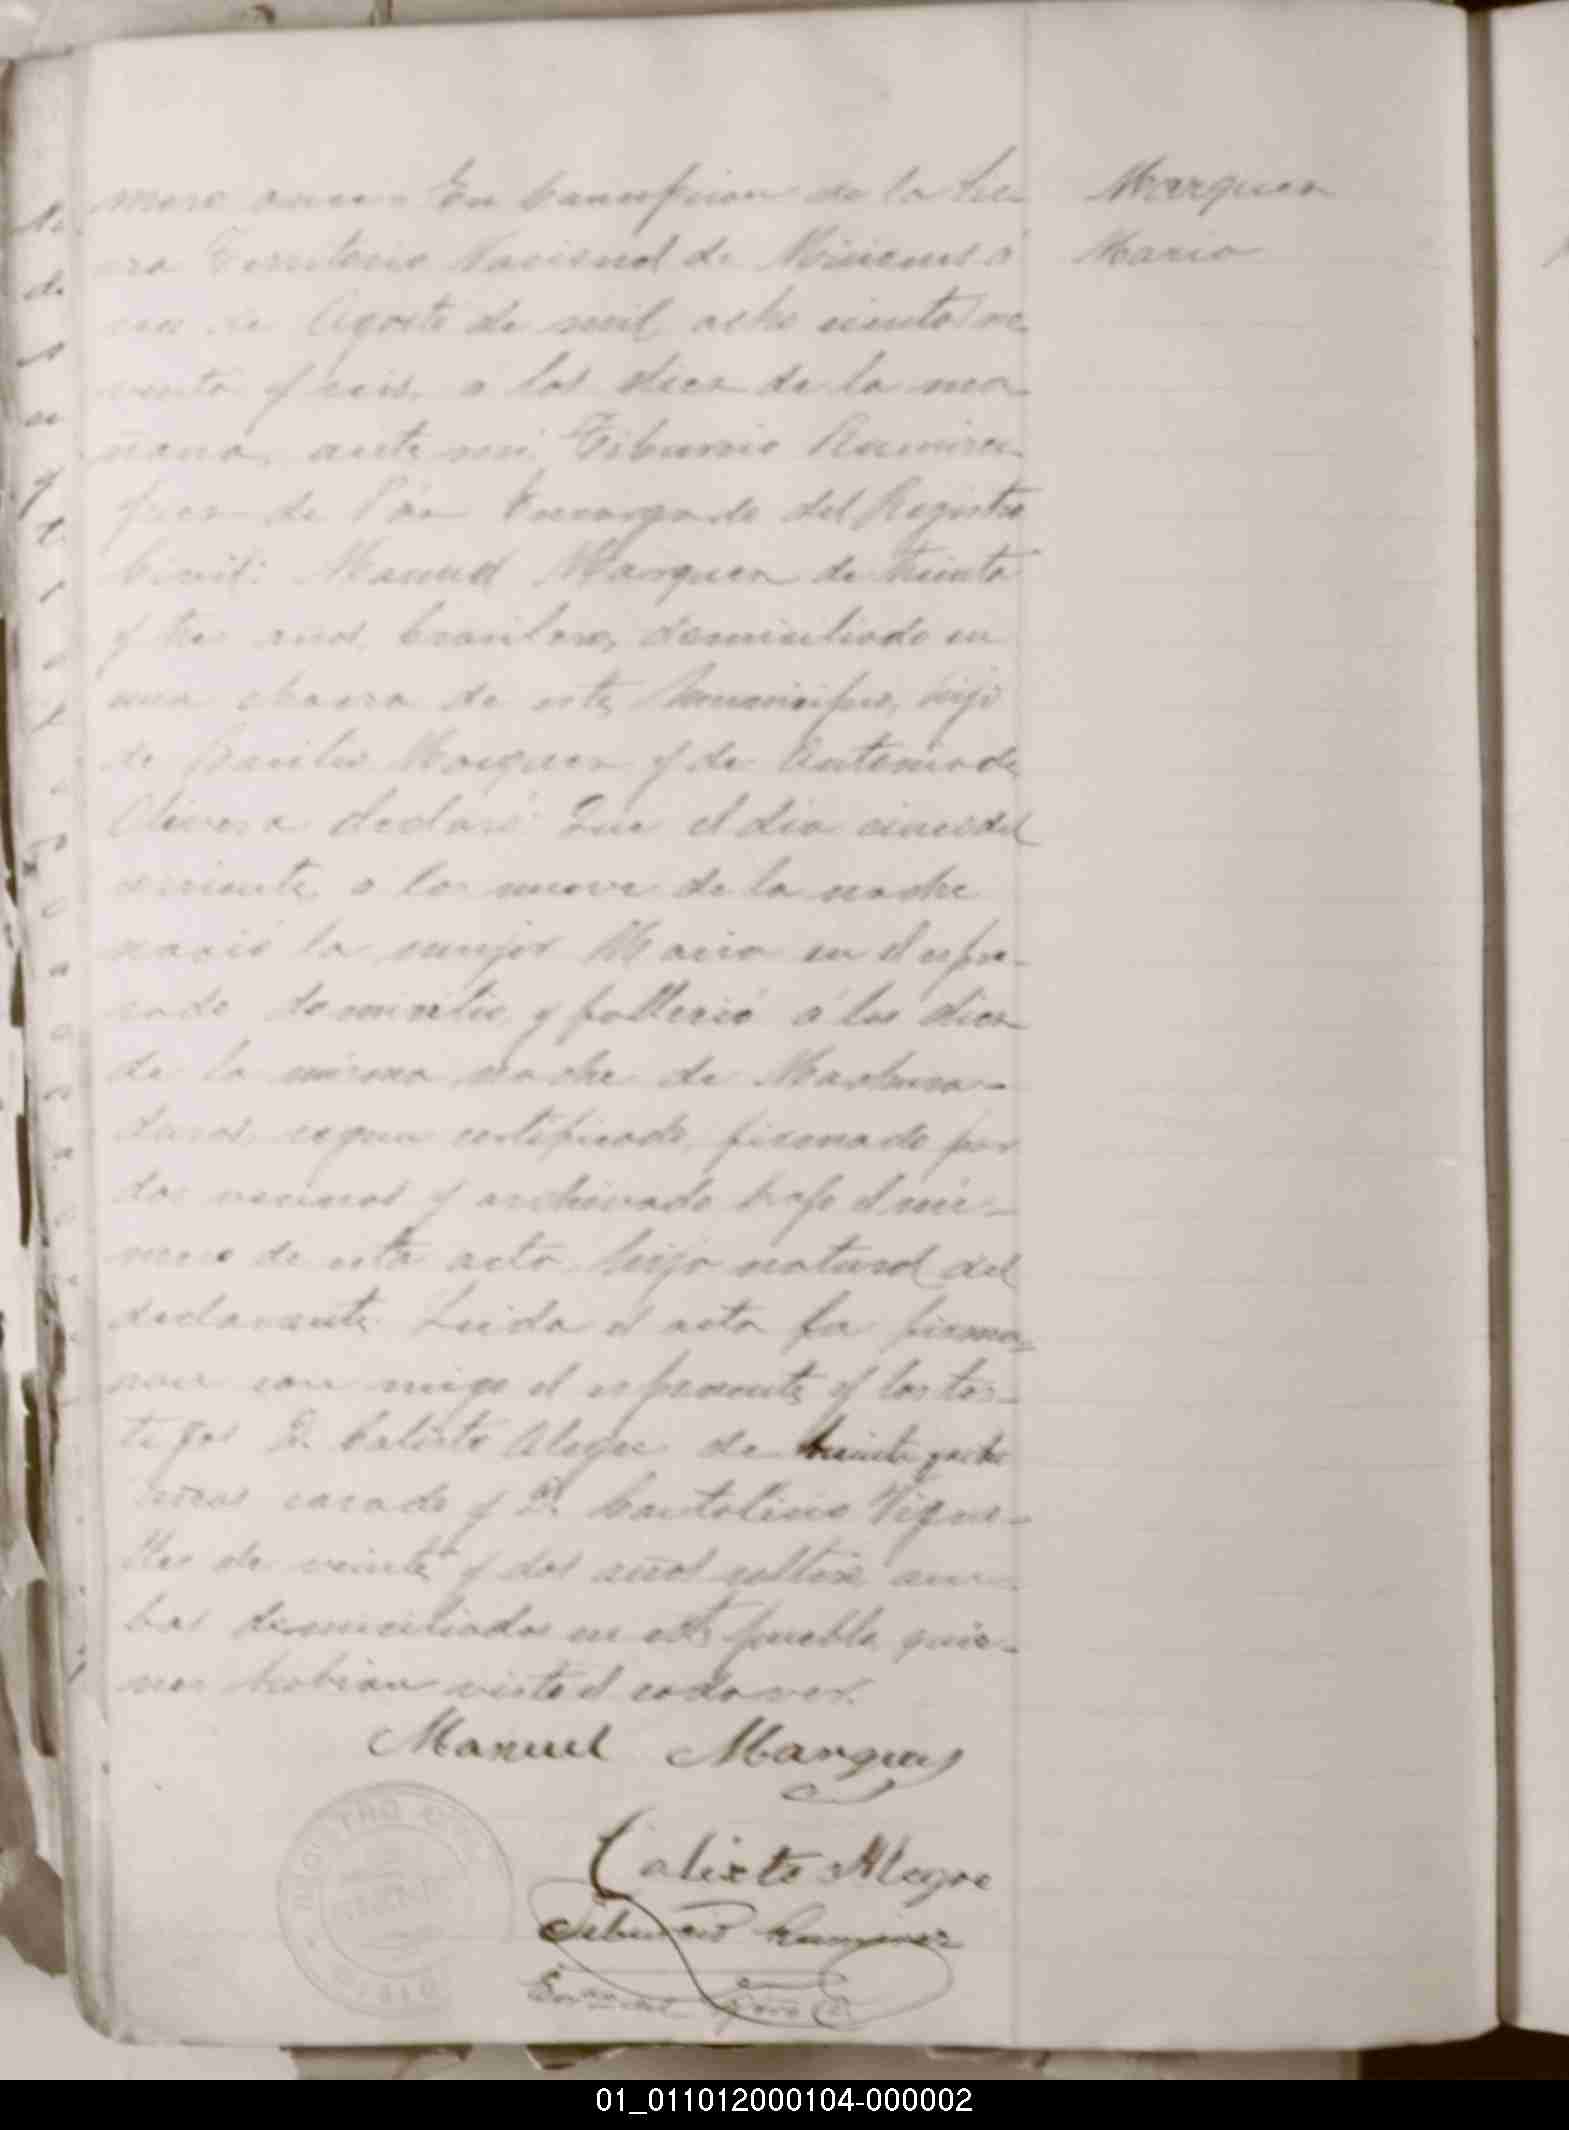 mero once. En Concepcion de la Sie-
rra Territorio Nacional de Misiones á
seis de Agosto de mil ocho cientos no
venta y seis, a las diez de la ma-
ñana, ante mi Tiburcio Ramirez
Juez de Paz Encargado del Registro
Civil: Manuel Marquez de treinta
y tres años, brasilero, domiciliado en
una chacra de este Municipio, hijo
de Marquez y de Antonia de
Olivera declaró: Que el dia cinco del
corriente a las nueve de la noche
nació la mujer Maria en el espre-
sado domicilio, y falleció á las diez
de la misma noche de
segun certificado, firmado por
dos vecinos y archivado bajo el nú-
mero de esta acta, hija natural del
declarante. Leida el acta la firma-
ron con migo el esponente y los tes-
tigos D. Calisto Alegre de treinta y ocho
años casado y D. Cantalicio
de veinte y dos años soltero, am-
bos domiciliados en este pueblo, quie-
nes habian visto el cadaver.
Marquez
Maria
Manuel Marques
Calixto Alegre
Tiburcio Ramirez
01_011012000104-000002